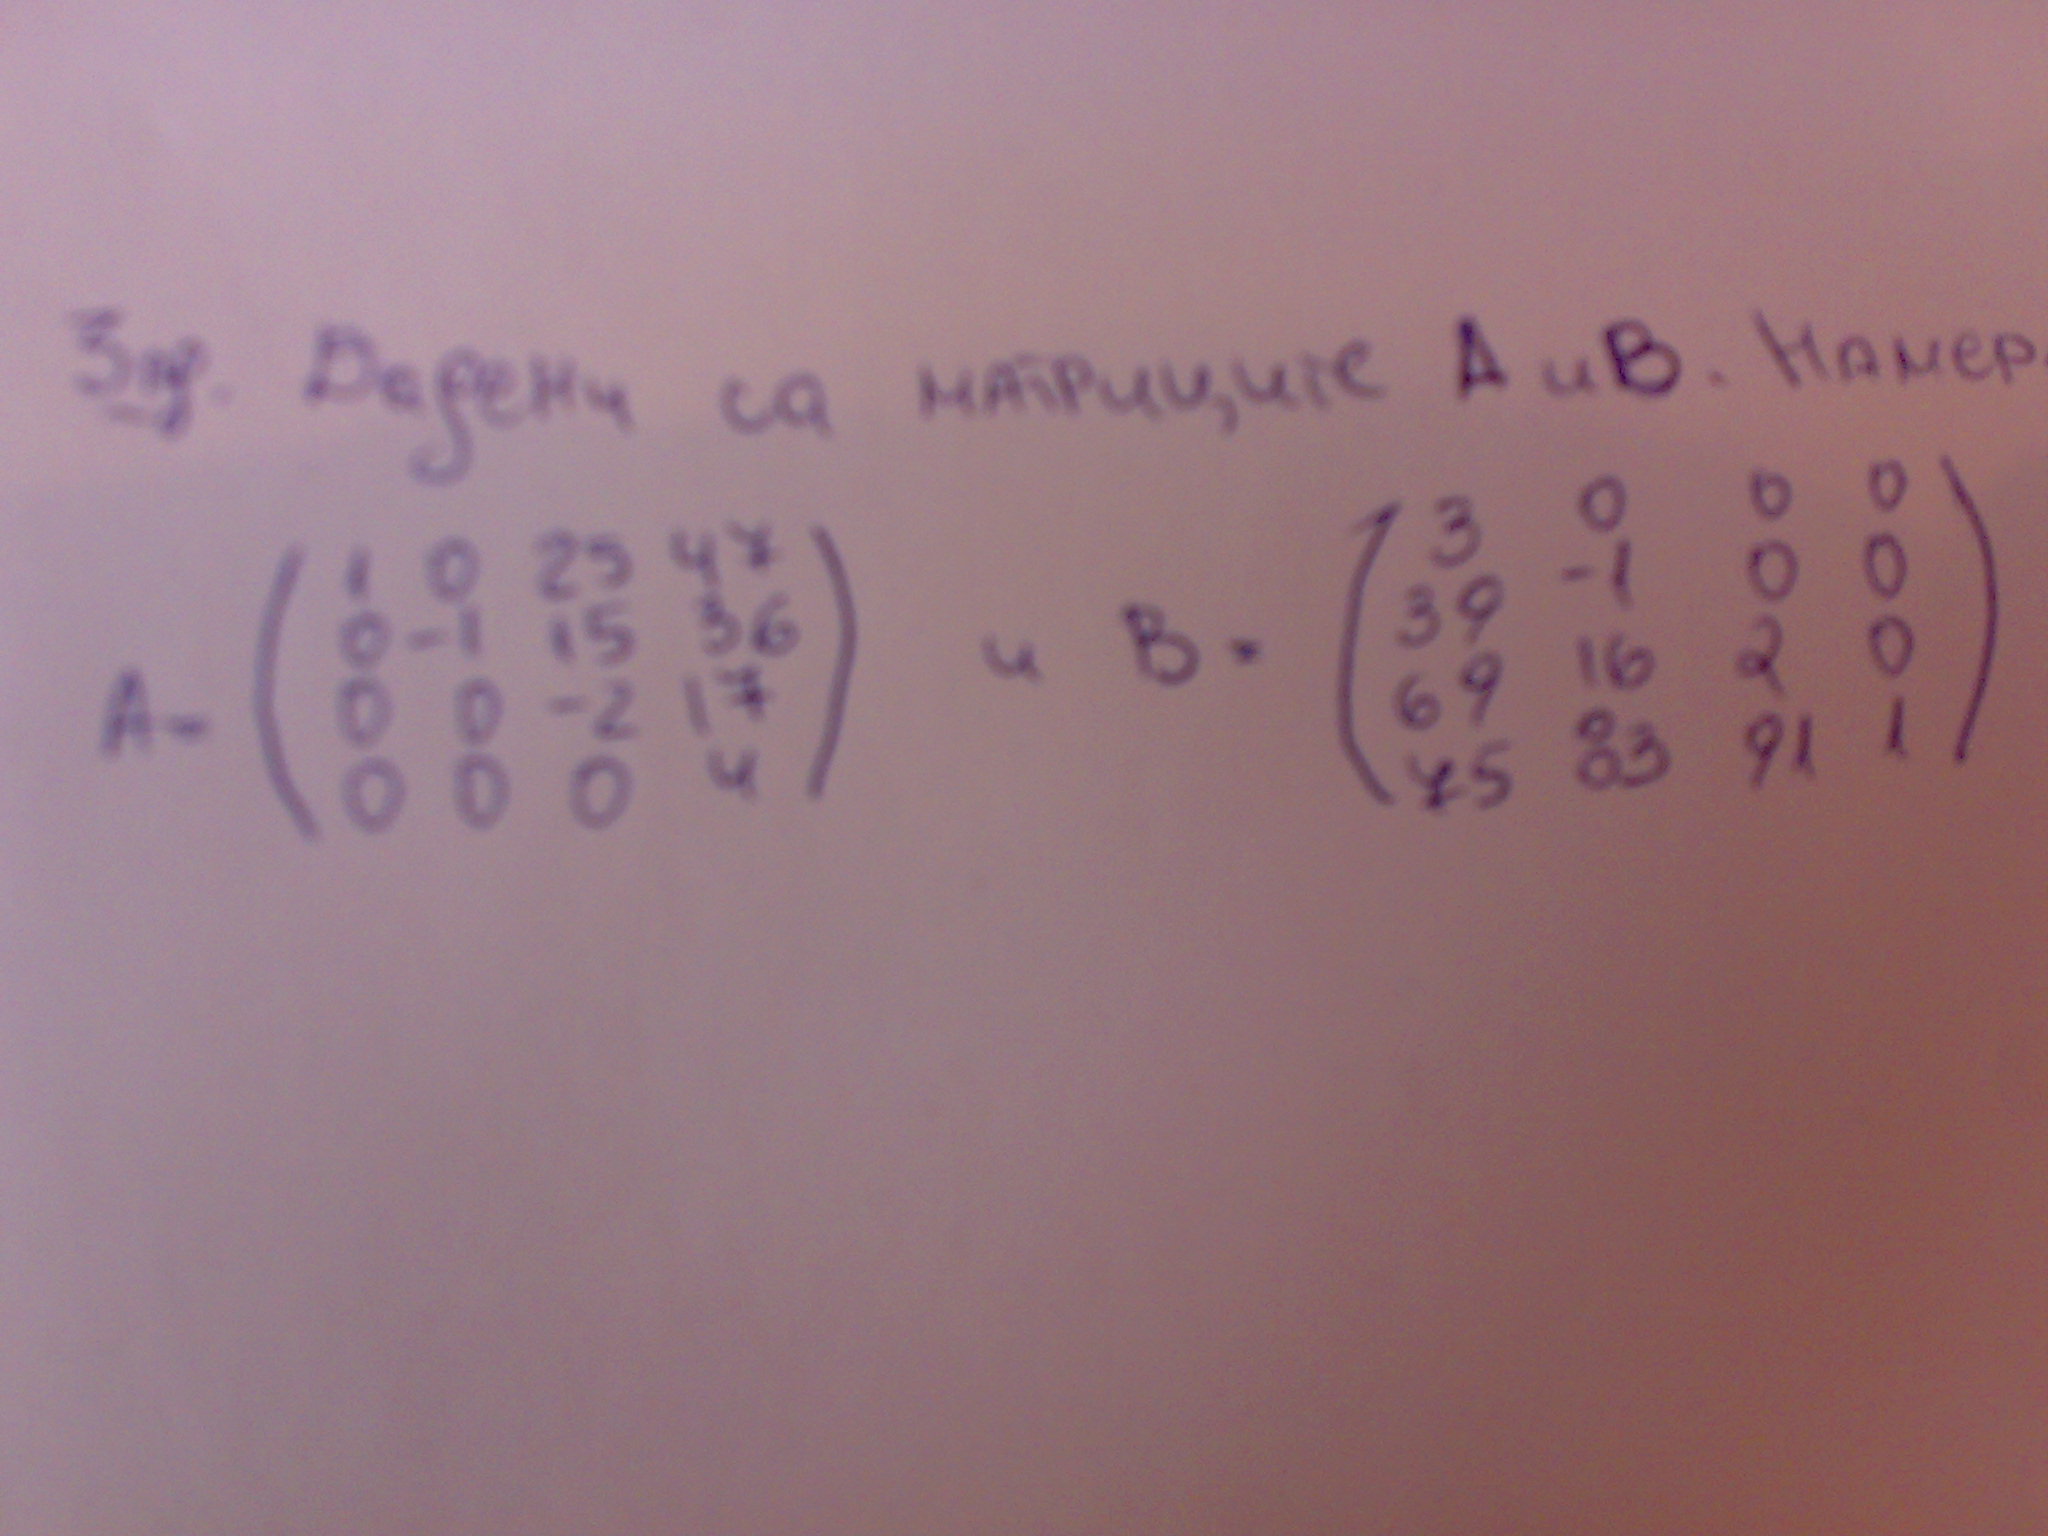 Зад. Дадени са матриците A и B. Намер
A = ( 1 0 25 47
0 -1 15 36
0 0 -2 17
0 0 0 4 ) и B = ( 3 0 0 0
39 -1 0 0
69 16 2 0
75 83 91 1 )